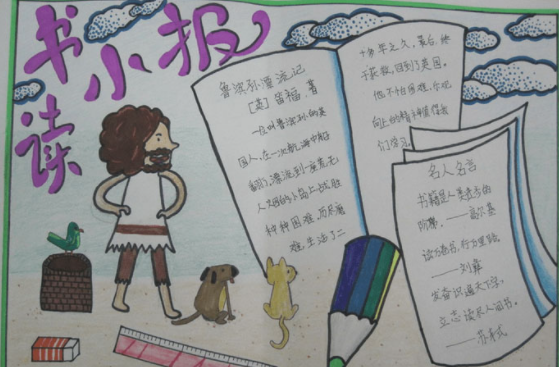 读书小报
鲁滨孙漂流记
[英]笛福·著
一名叫鲁滨孙的英
国人,在一次航海中船
翻了,漂流到一座荒无
人烟的小岛上,战胜
种种困难,历尽磨
难,生活了二
十八年之久,最后,终
于获救,回到了英国。
他不怕困难,乐观
向上的精神值得我
们学习。
名人名言
书籍是人类进步的
阶梯。——高尔基
读万卷书,行万里路
——刘彝
发奋识遍天下字,
立志读尽人间书。
——苏轼